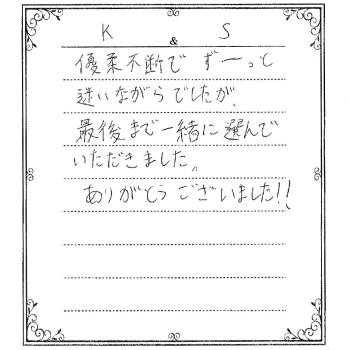 K & S
優柔不断で ずーっと
迷いながらでしたが、
最後まで一緒に選んで
いただきました。
ありがとうございました!!